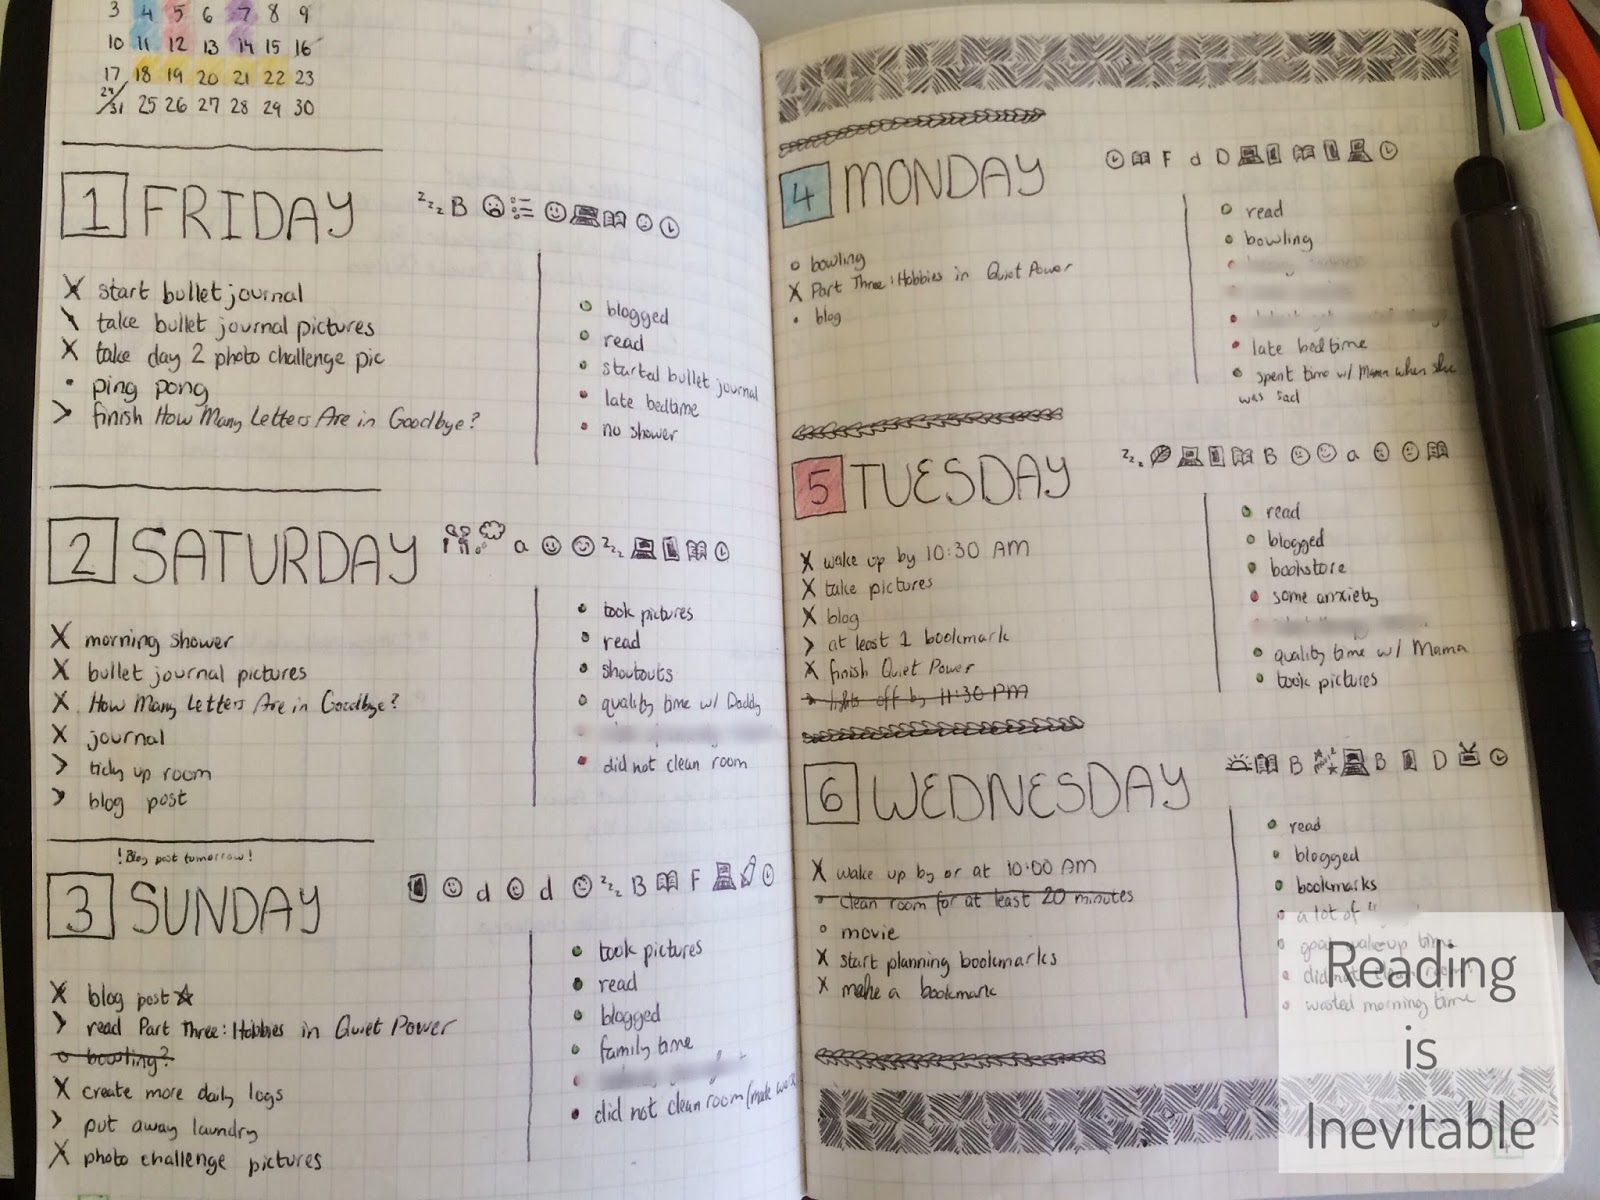 3 4 5 6 7 8 9
10 11 12 13 14 15 16
17 18 19 20 21 22 23
24/31 25 26 27 28 29 30
1 FRIDAY
zzz B
X start bullet journal
\ take bullet journal pictures
X take day 2 photo challenge pic
• ping pong
> finish How Many Letters Are in Goodbye?
• blogged
• read
• started bullet journal
• late bedtime
• no shower
2 SATURDAY
a zzz
X morning shower
X bullet journal pictures
X How Many Letters Are in Goodbye?
X journal
> tidy up room
> blog post
• took pictures
• read
• shoutouts
• quality time w/ Daddy
• did not clean room
! Blog post tomorrow !
3 SUNDAY
d d zzz B F
X blog post ☆
> read Part Three: Hobbies in Quiet Power
o bowling?
X create more daily logs
> put away laundry
X photo challenge pictures
• took pictures
• read
• blogged
• family time
• did not clean room (make
4 MONDAY
F d D
o bowling
X Part Three: Hobbies in Quiet Power
• blog
• read
• bowling
• late bedtime
• spent time w/ Mama when she
was sad
5 TUESDAY
zzz B a
X wake up by 10:30 AM
X take pictures
X blog
> at least 1 bookmark
X finish Quiet Power
> lights off by 11:30 PM
• read
• blogged
• bookstore
• some anxiety
• quality time w/ Mama
• took pictures
6 WEDNESDAY
B B D
X wake up by or at 10:00 AM
• clean room for at least 20 minutes
o movie
X start planning bookmarks
X make a bookmark
• read
• blogged
• bookmarks
• a lot of
• good wake-up time
• did not clean room
• wasted morning time
Reading
is
Inevitable